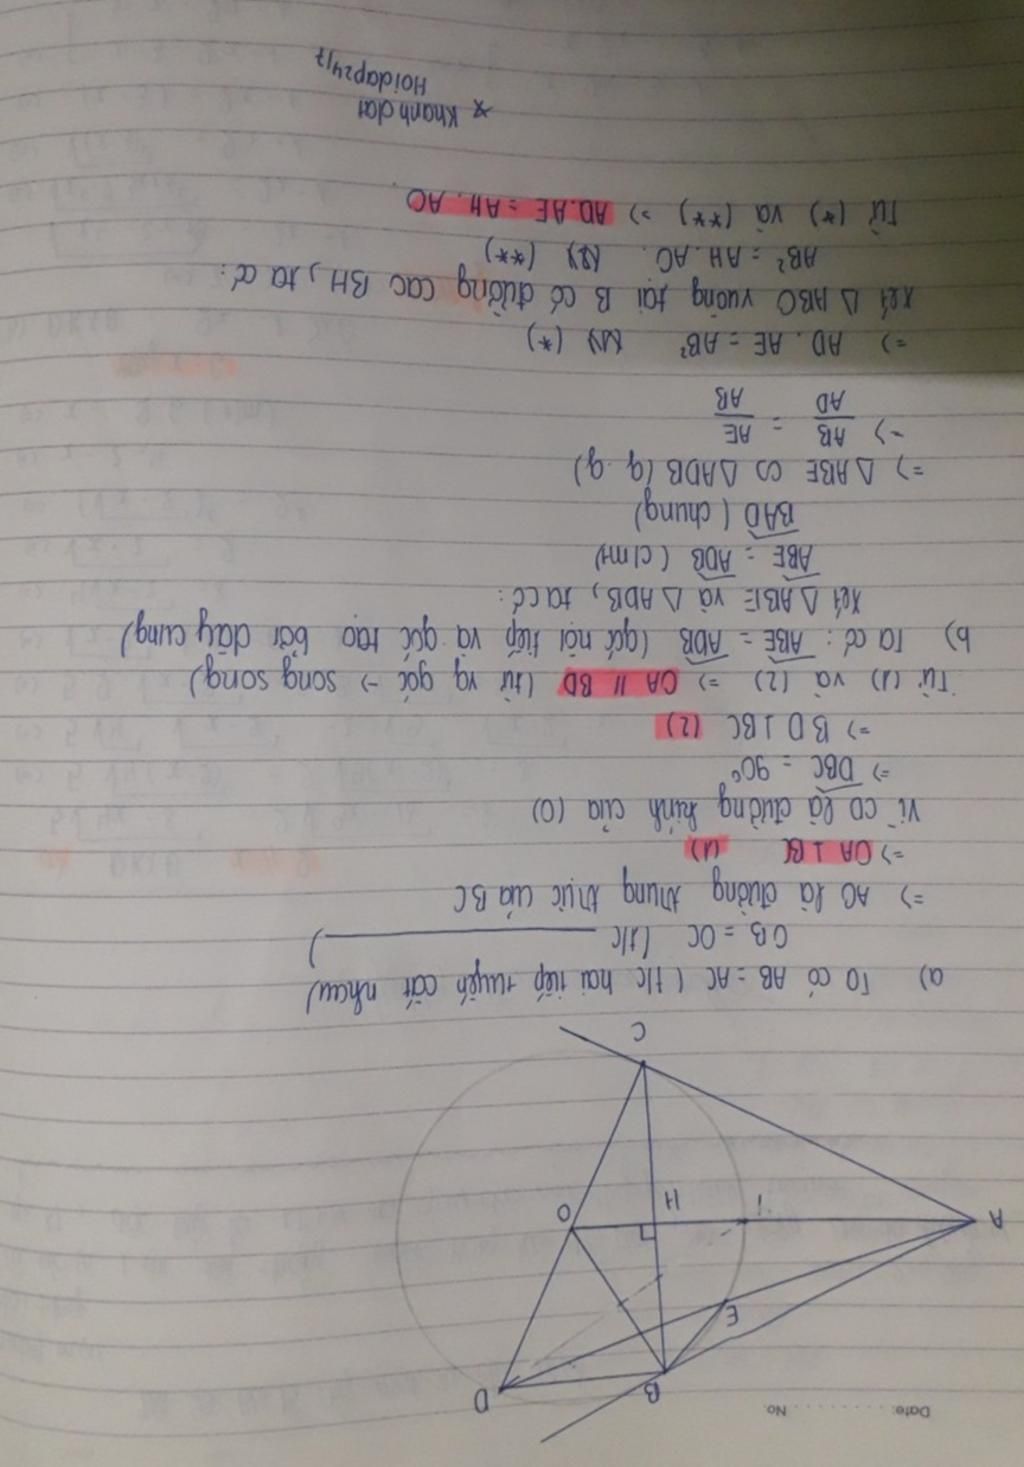 Date: ........... No.
B
D
E
A
i
H
O
C
a) Ta có AB = AC (t/c hai tiếp tuyến cắt nhau)
OB = OC (t/c ————)
=> AO là đường trung trực của BC
=> OA ⊥ BC (1)
Vì CD là đường kính của (O)
=> DBC = 90°
=> BD ⊥ BC (2)
Từ (1) và (2) => OA // BD (từ vg góc -> song song)
b) Ta có: ABE = ADB (góc nội tiếp và góc tạo bởi dây cung)
Xét △ABE và △ADB, ta có:
ABE = ADB (cmt)
BAD (chung)
=> △ABE ∽ △ADB (g.g)
=> AB/AD = AE/AB
=> AD. AE = AB² (*)
Xét △ABO vuông tại B có đường cao BH, ta có:
AB² = AH. AO. (**)
Từ (*) và (**) => AD.AE = AH. AO.
Khanh dai
Hoidap247